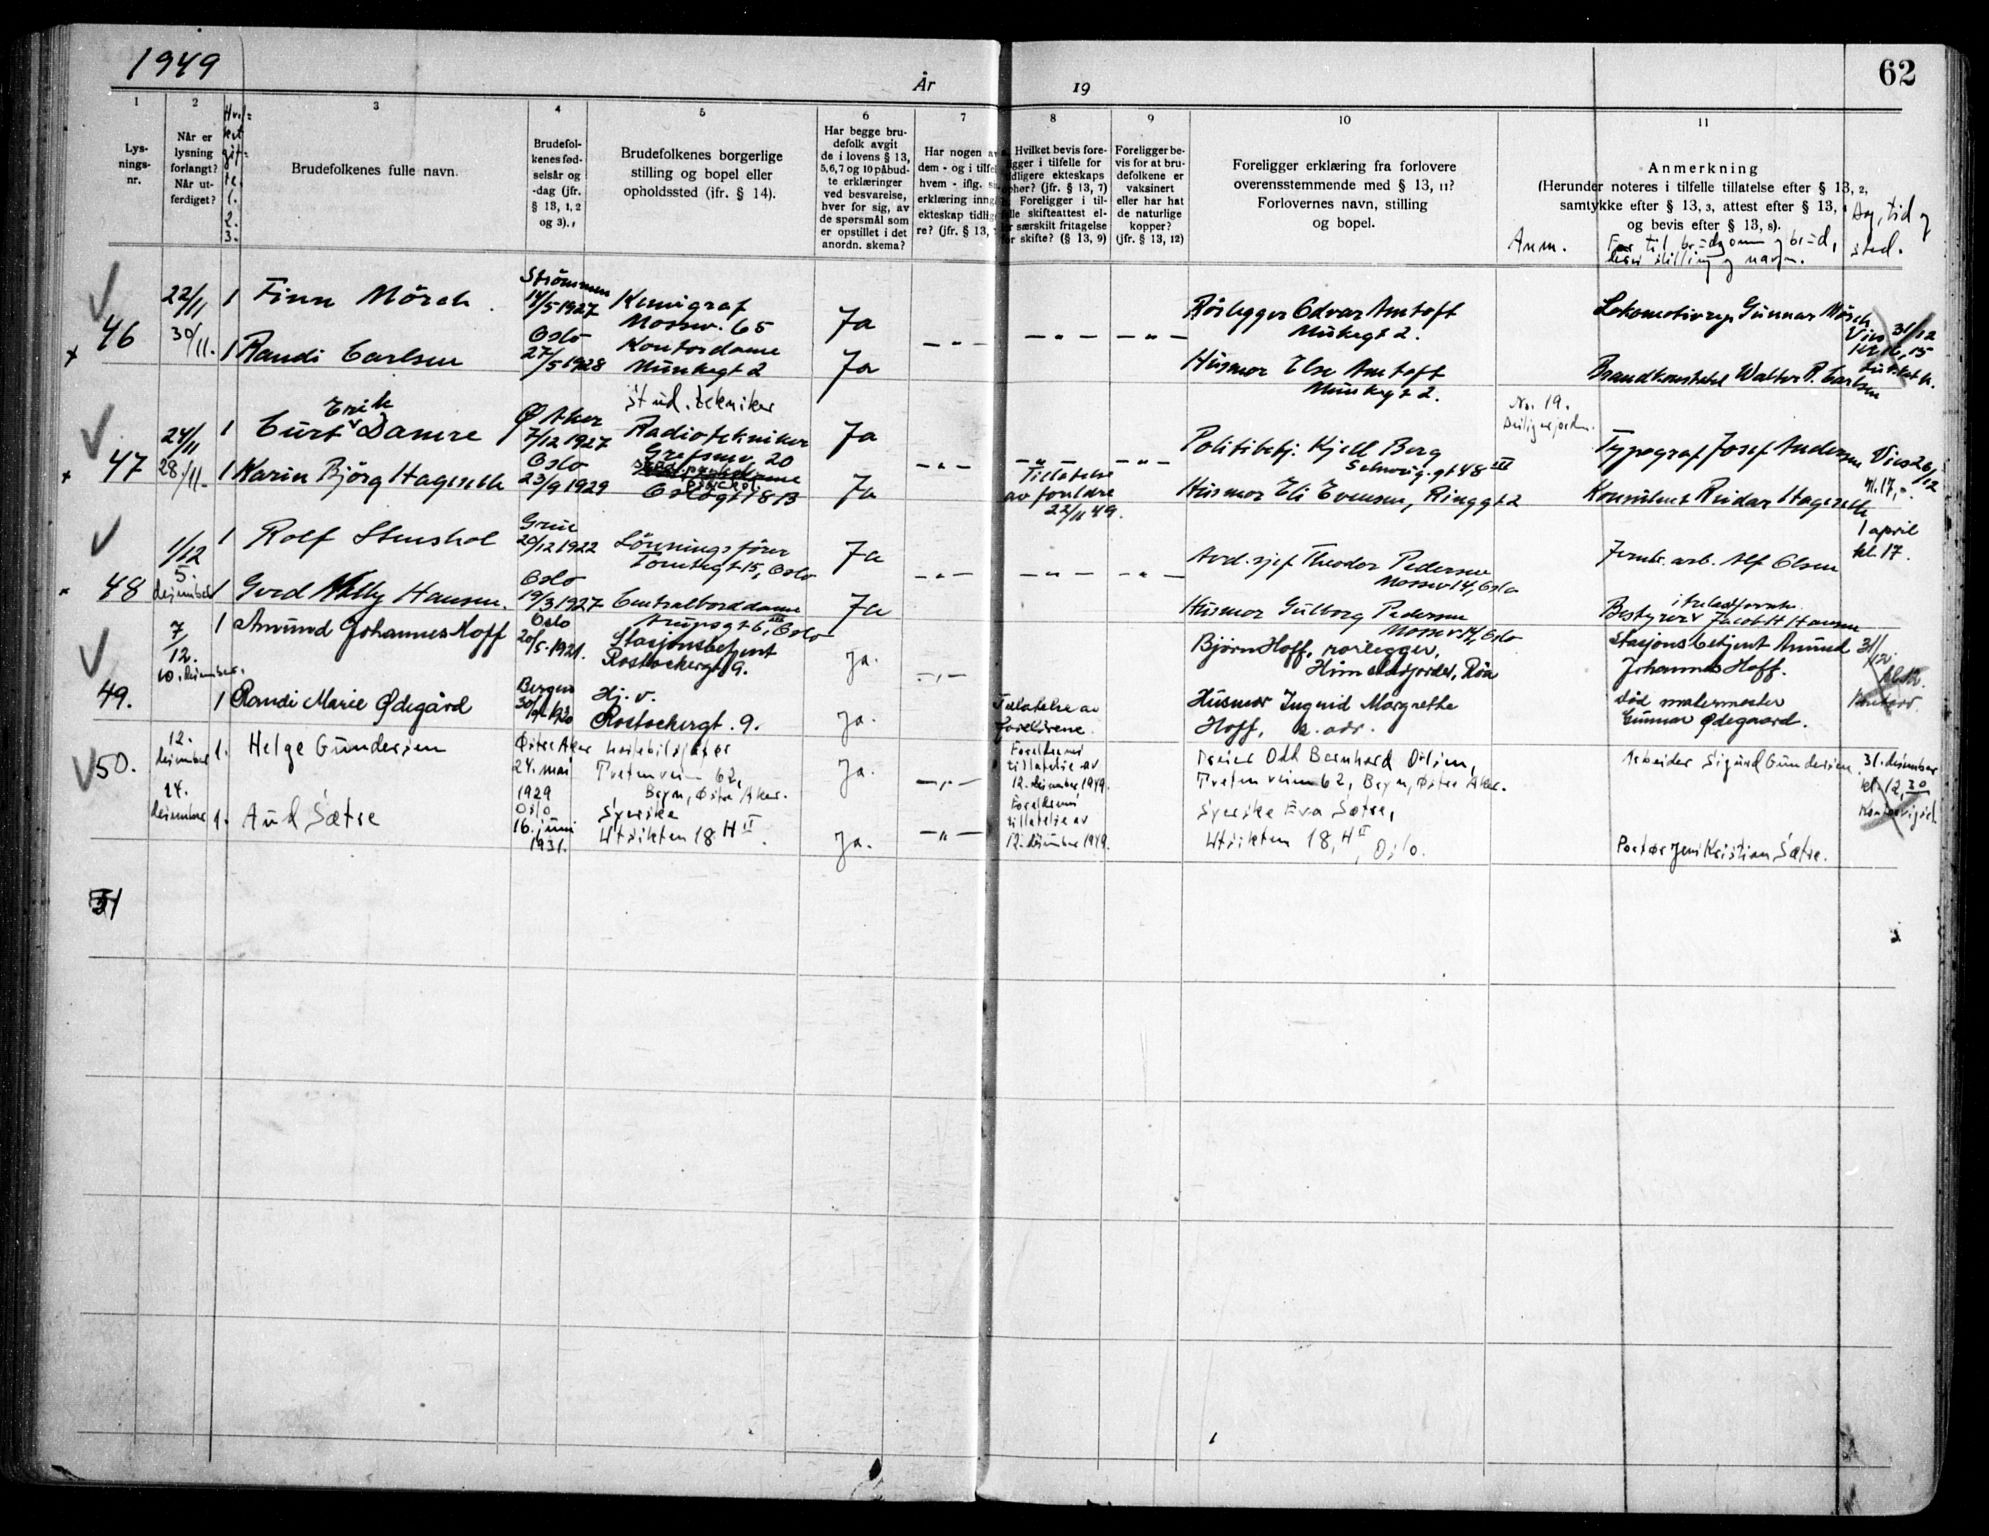 1949
År
19
62
1
2
3
4
5
6
7
8
9
10
11
Lys-
nings-
nr.
Når er
lysning
forlangt?
Når ut-
ferdiget?
1.
2.
3.
Brudefolkenes fulle navn.
Brudefol-
kenes fød-
selsår og
-dag (jfr.
§ 13, 1, 2
og 3).
Brudefolkenes borgerlige
stilling og bopel eller
opholdssted (jfr. § 14).
Har begge bru-
defolk avgit
de i lovens § 13,
5, 6, 7 og 10 påbud-
te erklæringer
ved besvarelse,
hver for sig, av
de spørsmål som
er opstillet i det
anordn. skema?
Har nogen
dem - og i
hvem - iflg.
erklæring
ekteskap
re? (jfr. § 13,
Hvilket bevis fore-
ligger i tilfelle for
tidligere ekteskaps
ophør? (jfr. § 13, 7)
Foreligger i til-
skifteattest el-
særskilt fritagelse
for skifte? (§ 13, 9)
Foreligger be-
vis for at bru-
defolkene er
vaksinert
eller har hat
de naturlige
kopper?
(jfr. § 13, 12)
Foreligger erklæring fra forlovere
overensstemmende med § 13, 11?
Forlovernes navn, stilling
og bopel.
Anm.
Anmerkning
(Herunder noteres i tilfelle tillatelse efter § 13, 2,
samtykke efter § 13, 3, attest efter § 13,
og bevis efter § 13, 8).
Far til brudgom og brud,
stilling og navn.
Dag, tid og
sted.
46
22/11
30/11.
1 Finn Mörch
Strømmen
14/5 1927
Kemigraf
Mossev. 65
Ja
Rörlegger Edvar Amtoft
Munkegt 2.
Gunnar Mörch
31/12
1 Randi Carlsen
Oslo
27/5 1928
Kontordame
Munkegt 2
Ja
Husmor Else Amtoft
Munkegt 2.
Walter R. Carlsen
47
24/11
28/11.
1 Curt Erik Damre
Ø Aker
7/12 1927
Stud. tekniker
Radiotekniker
Grefsenv. 20
Ja
Politibetj. Kjell Berg
Schweig. gt 48 III
No. 19.
Typograf Josef Andersen
26/12
kl. 17,-
1 Karin Björg Hageseth
Oslo
23/9 1929
Oslogt 18 B
Ja
Tillatelse
av foreldre
22/11 49.
Husmor Eli Evensen, Ringgt 2
Konsulent Reidar Hageseth
48
1/12
5.
desember
1 Rolf Stenshol
Grue
20/12 1922
Lönningsförer
Tomtegt 15, Oslo
Ja
Avd. sjef Theodor Pedersen
Mossev 14, Oslo
Jernb. arb. Alf Olsen
1 april
kl. 17.
1 Gerd Nelly Hansen.
Oslo
19/3 1927
Centralborddame
Arupsgt 6, Oslo
Ja
Husmor Gulborg Pedersen
Mossev 14, Oslo
Bestyrer Jacob H Hansen
49.
7/12.
10. desember.
1 Amund Johannes Hoff
Oslo
20/5. 1921.
Stasjonsbetjent
Rostockergt 9.
Ja.
Bjørn Hoff, rørlegger,
Røa
Stasjonsbetjent Amund
Johannes Hoff.
31/12.
1 Randi Marie Ødegård
Bergen
Hj. v.
Rostockergt. 9.
Ja.
Tillatelse av
foreldrene.
Husmor Ingrid Margrethe
Hoff, s. adr.
død malermester
Gunnar Ødegaard.
50.
12.
desember
14.
desember
1. Helge Gundersen
Østre Aker
24. mai
1929
Tvetenveien 62,
Bryn, Østre Aker.
Ja.
Foreldrenes
tillatelse av
12. desember 1949.
Dreier Odd Bernhard Olsen,
Tvetenveien 62, Bryn, Østre Aker.
Arbeider Sigurd Gundersen.
31. desember
kl. 12,30
1. Aud Sætre
Oslo
16. juni
1931.
Syerske
Utsikten 18 H II.
Ja.
Foreldrenes
tillatelse av
12. desember 1949.
Syerske Eva Sætre,
Utsikten 18, H II, Oslo.
Portør Jens Kristian Sætre.
51